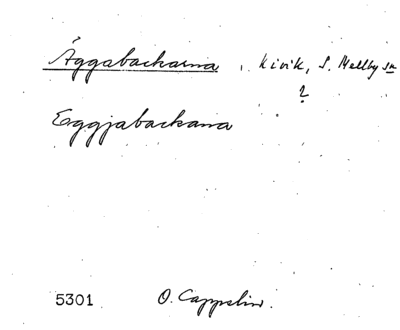 Äggabackarna, Kivik, S. Mellby sn
?
Eggjabackana
5301 O. Cappelin.